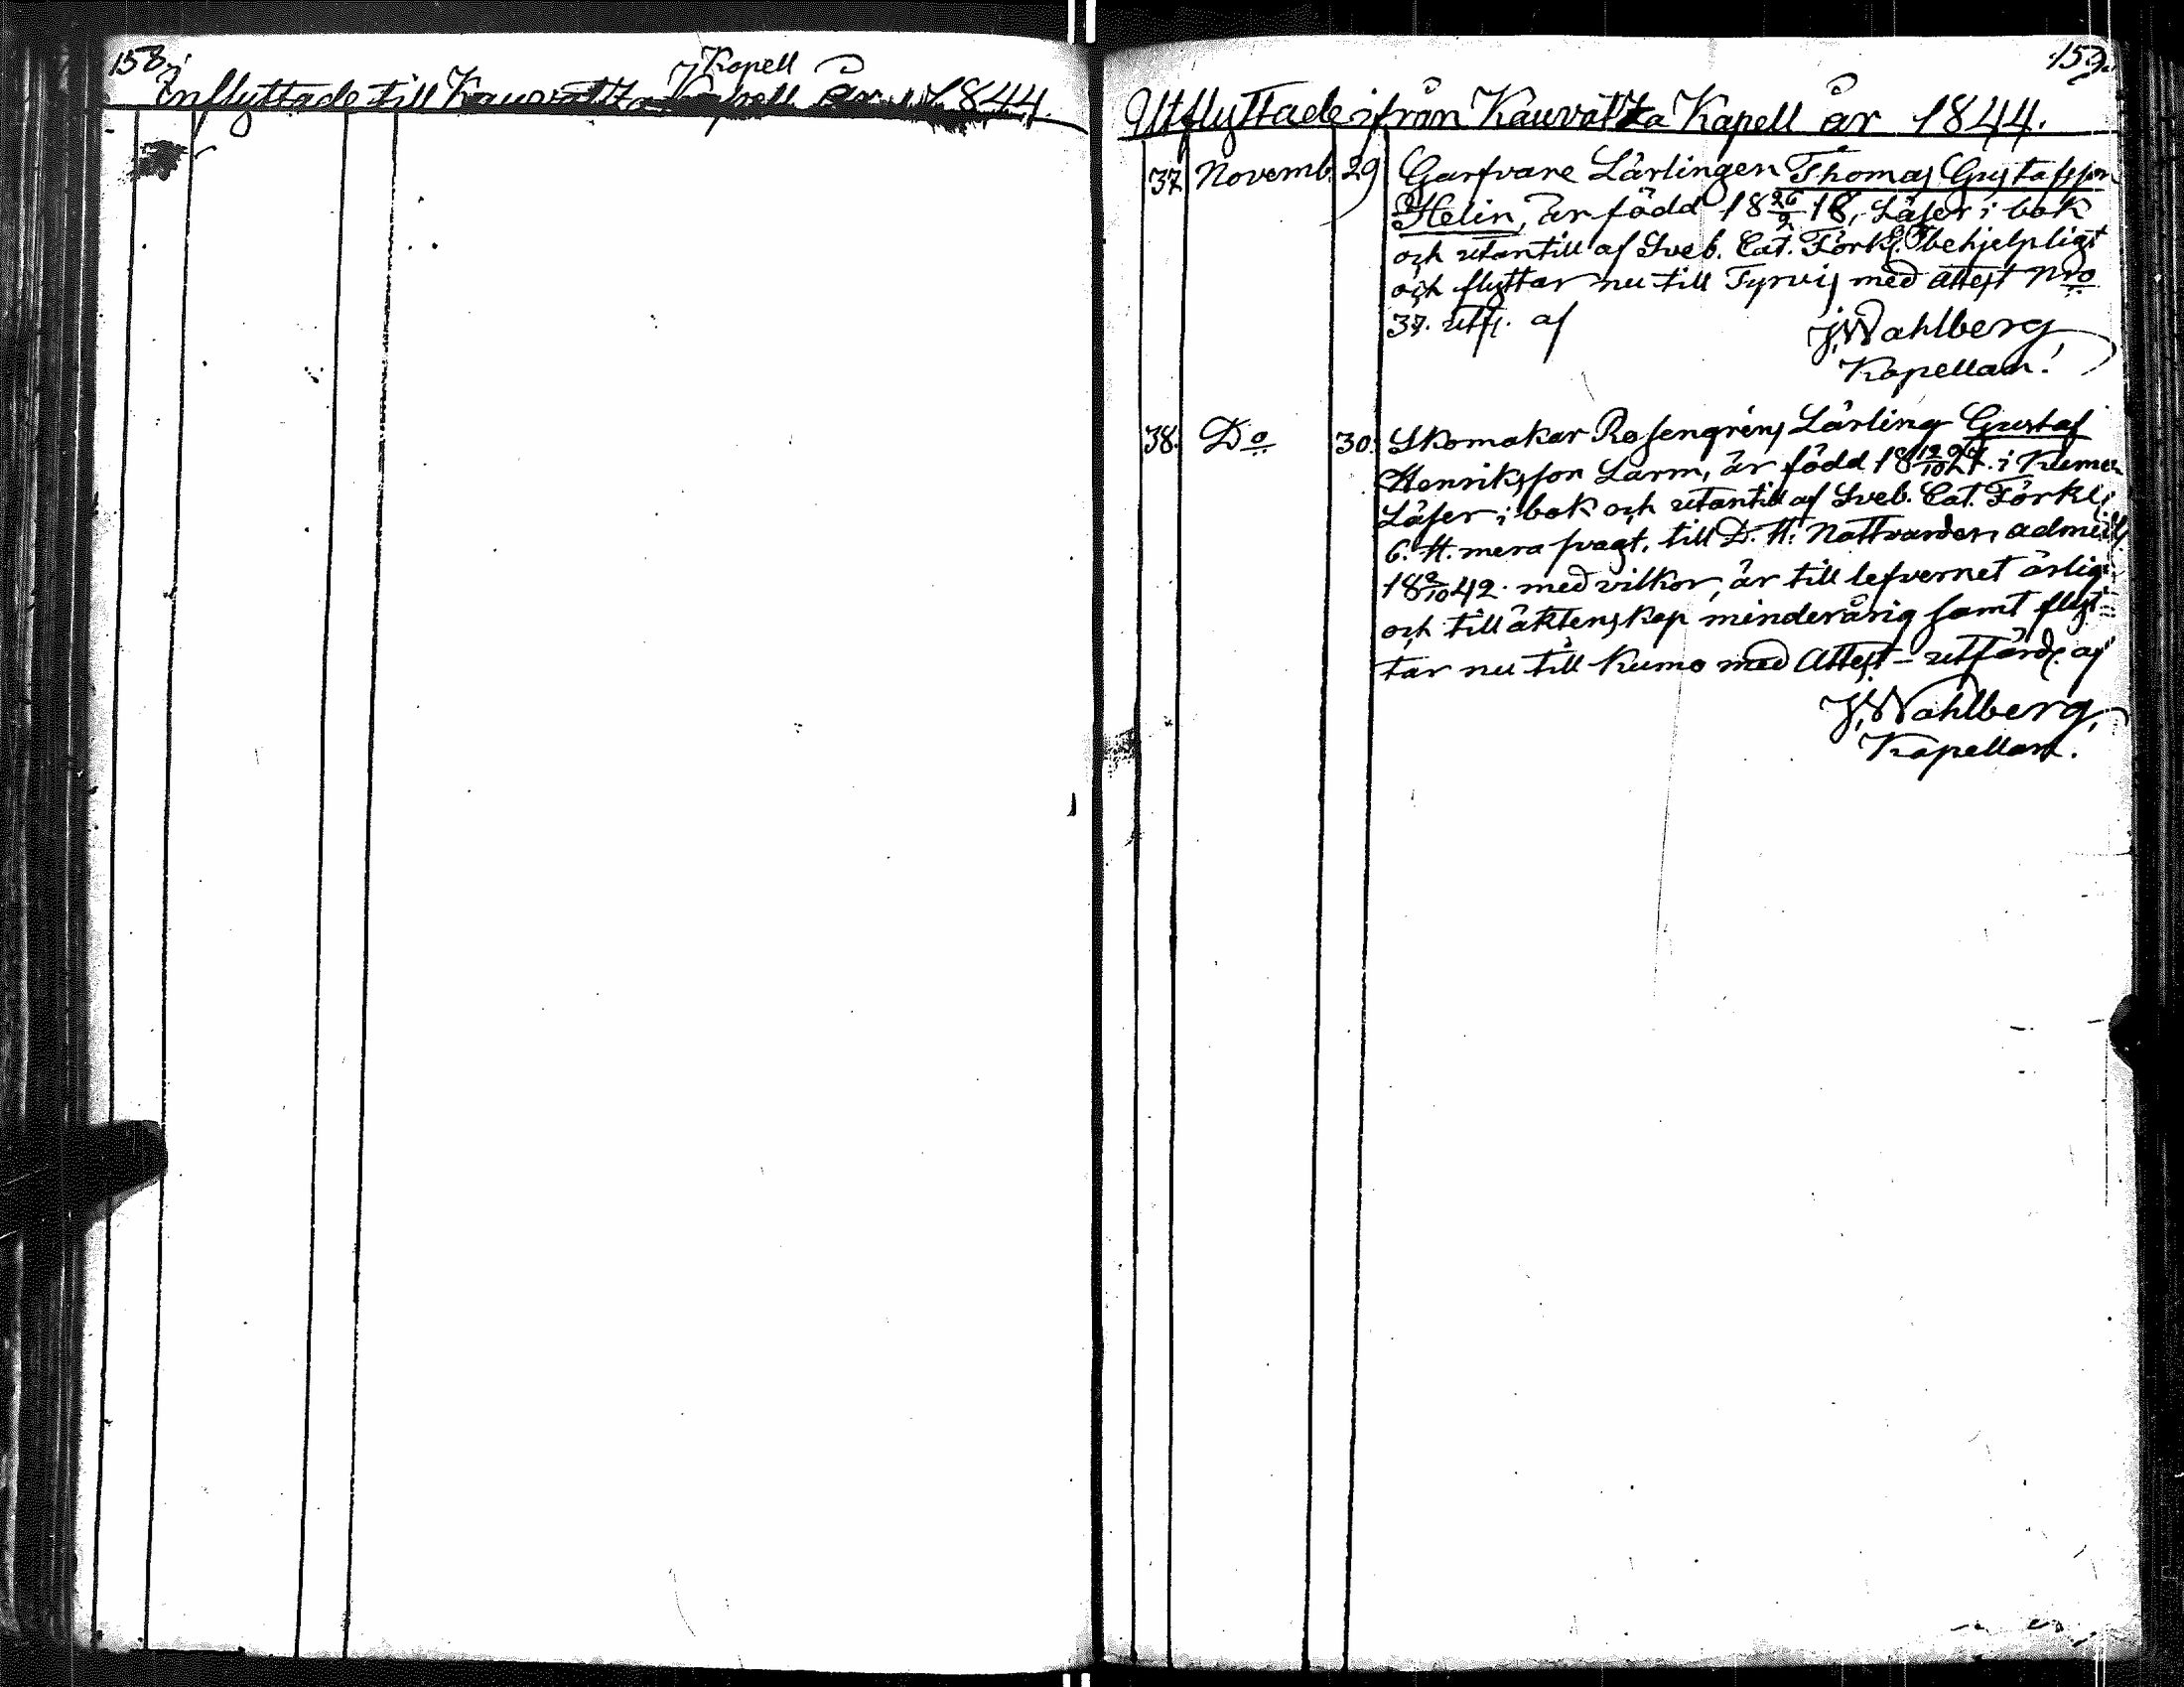 158.
Kapell
Inflyttade till Kauvatza Kapell År 1844.
159.
Utflyttade ifrån Kauvatza Kapell år 1844.
37 Novemb. 29 Garfvare Lärlingen Thomas Gustafsson
Helin, är född 18 26/2 18, Läser i bok
och utantill af Sveb. Cat. Förkl. behjelpligt
och flyttar nu till Tyrvis med attest Nro
37. utf. af J. Wahlberg
Kapellan.
38. Do 30. Skomakar Rosengréns Lärling Gustaf
Henriksson Larm, är född 18 12/10 27. i Kumo
Läser i bok och utantill af Sveb. Cat. Förkl.
6. H. mera svagt, till D. H. Nattvarden admitt.
18 2/10 42. med vilkor, är till lefvernet ärlig
och till äktenskap minderårig samt flyt=
tar nu till Kumo med Attest - utfärd. af
J. Wahlberg,
Kapellan.